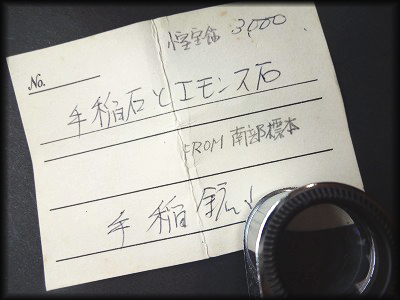 小室宝飾 3000
No.
手稲石とエモンス石
FROM 南部標本
手稲鉱山